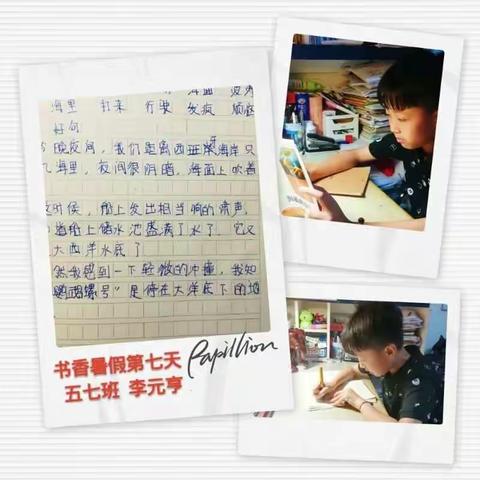 海面
海里 打来 行驶 发疯
好句
晚夜间，我们距离西班牙海岸只
几海里，夜间很阴暗，海面上吹着
时候，船上发出相当响的声，
船上储水池盛满了水了。它又
大西洋水底了
然我感到一下轻微的冲撞，我知
鹦鹉螺号"是停在大洋底下的地
书香暑假第七天
Papillion
五七班 李元亨